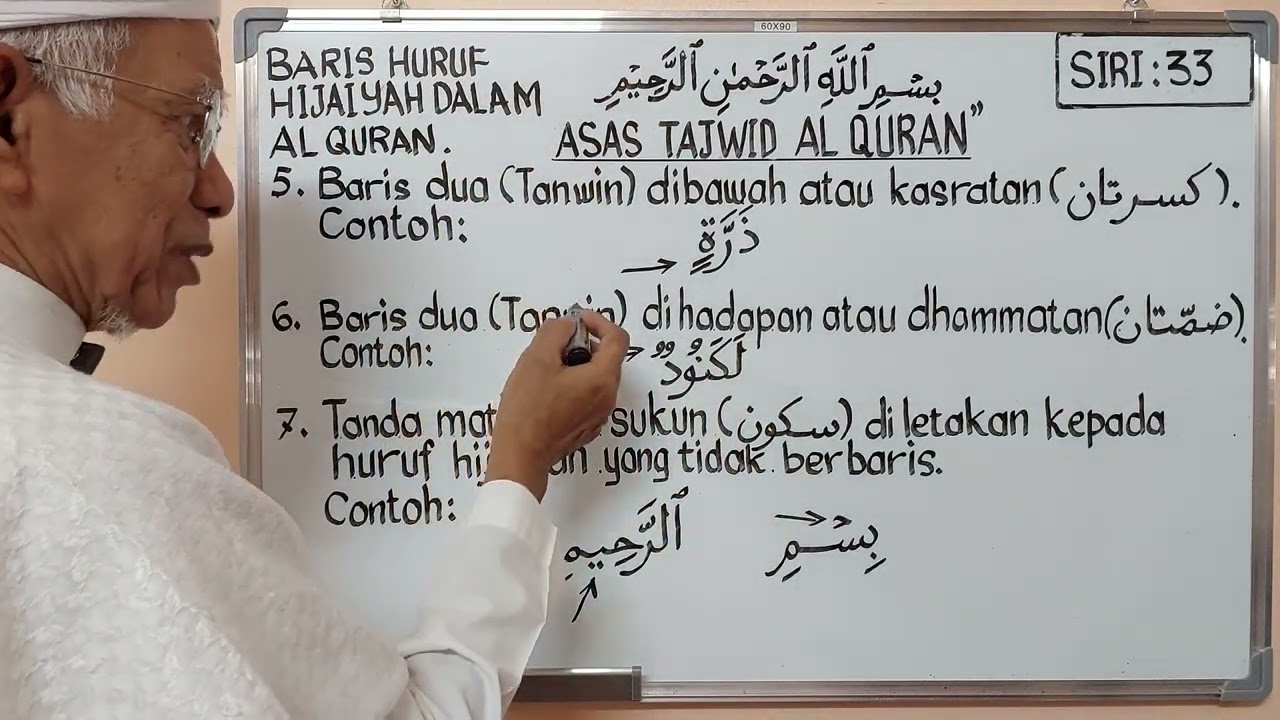 60X90
BARIS HURUF
HIJAIYAH DALAM
AL QURAN.
بِسْمِ ٱللَّهِ ٱلرَّحْمَٰنِ ٱلرَّحِيْمِ
SIRI:33
ASAS TAJWID AL QURAN"
5. Baris dua (Tanwin) dibawah atau kasratan (كسرتان).
Contoh:
→ ذَرَّةٍ
6. Baris dua (Tanwin) di hadapan atau dhammatan (ضمّتان).
Contoh:
→ لَكَنُوْدٌ
7. Tanda sukun (سكون) di letakan kepada
huruf yang tidak berbaris.
Contoh:
بِسْمِ ٱلرَّحِيمِ